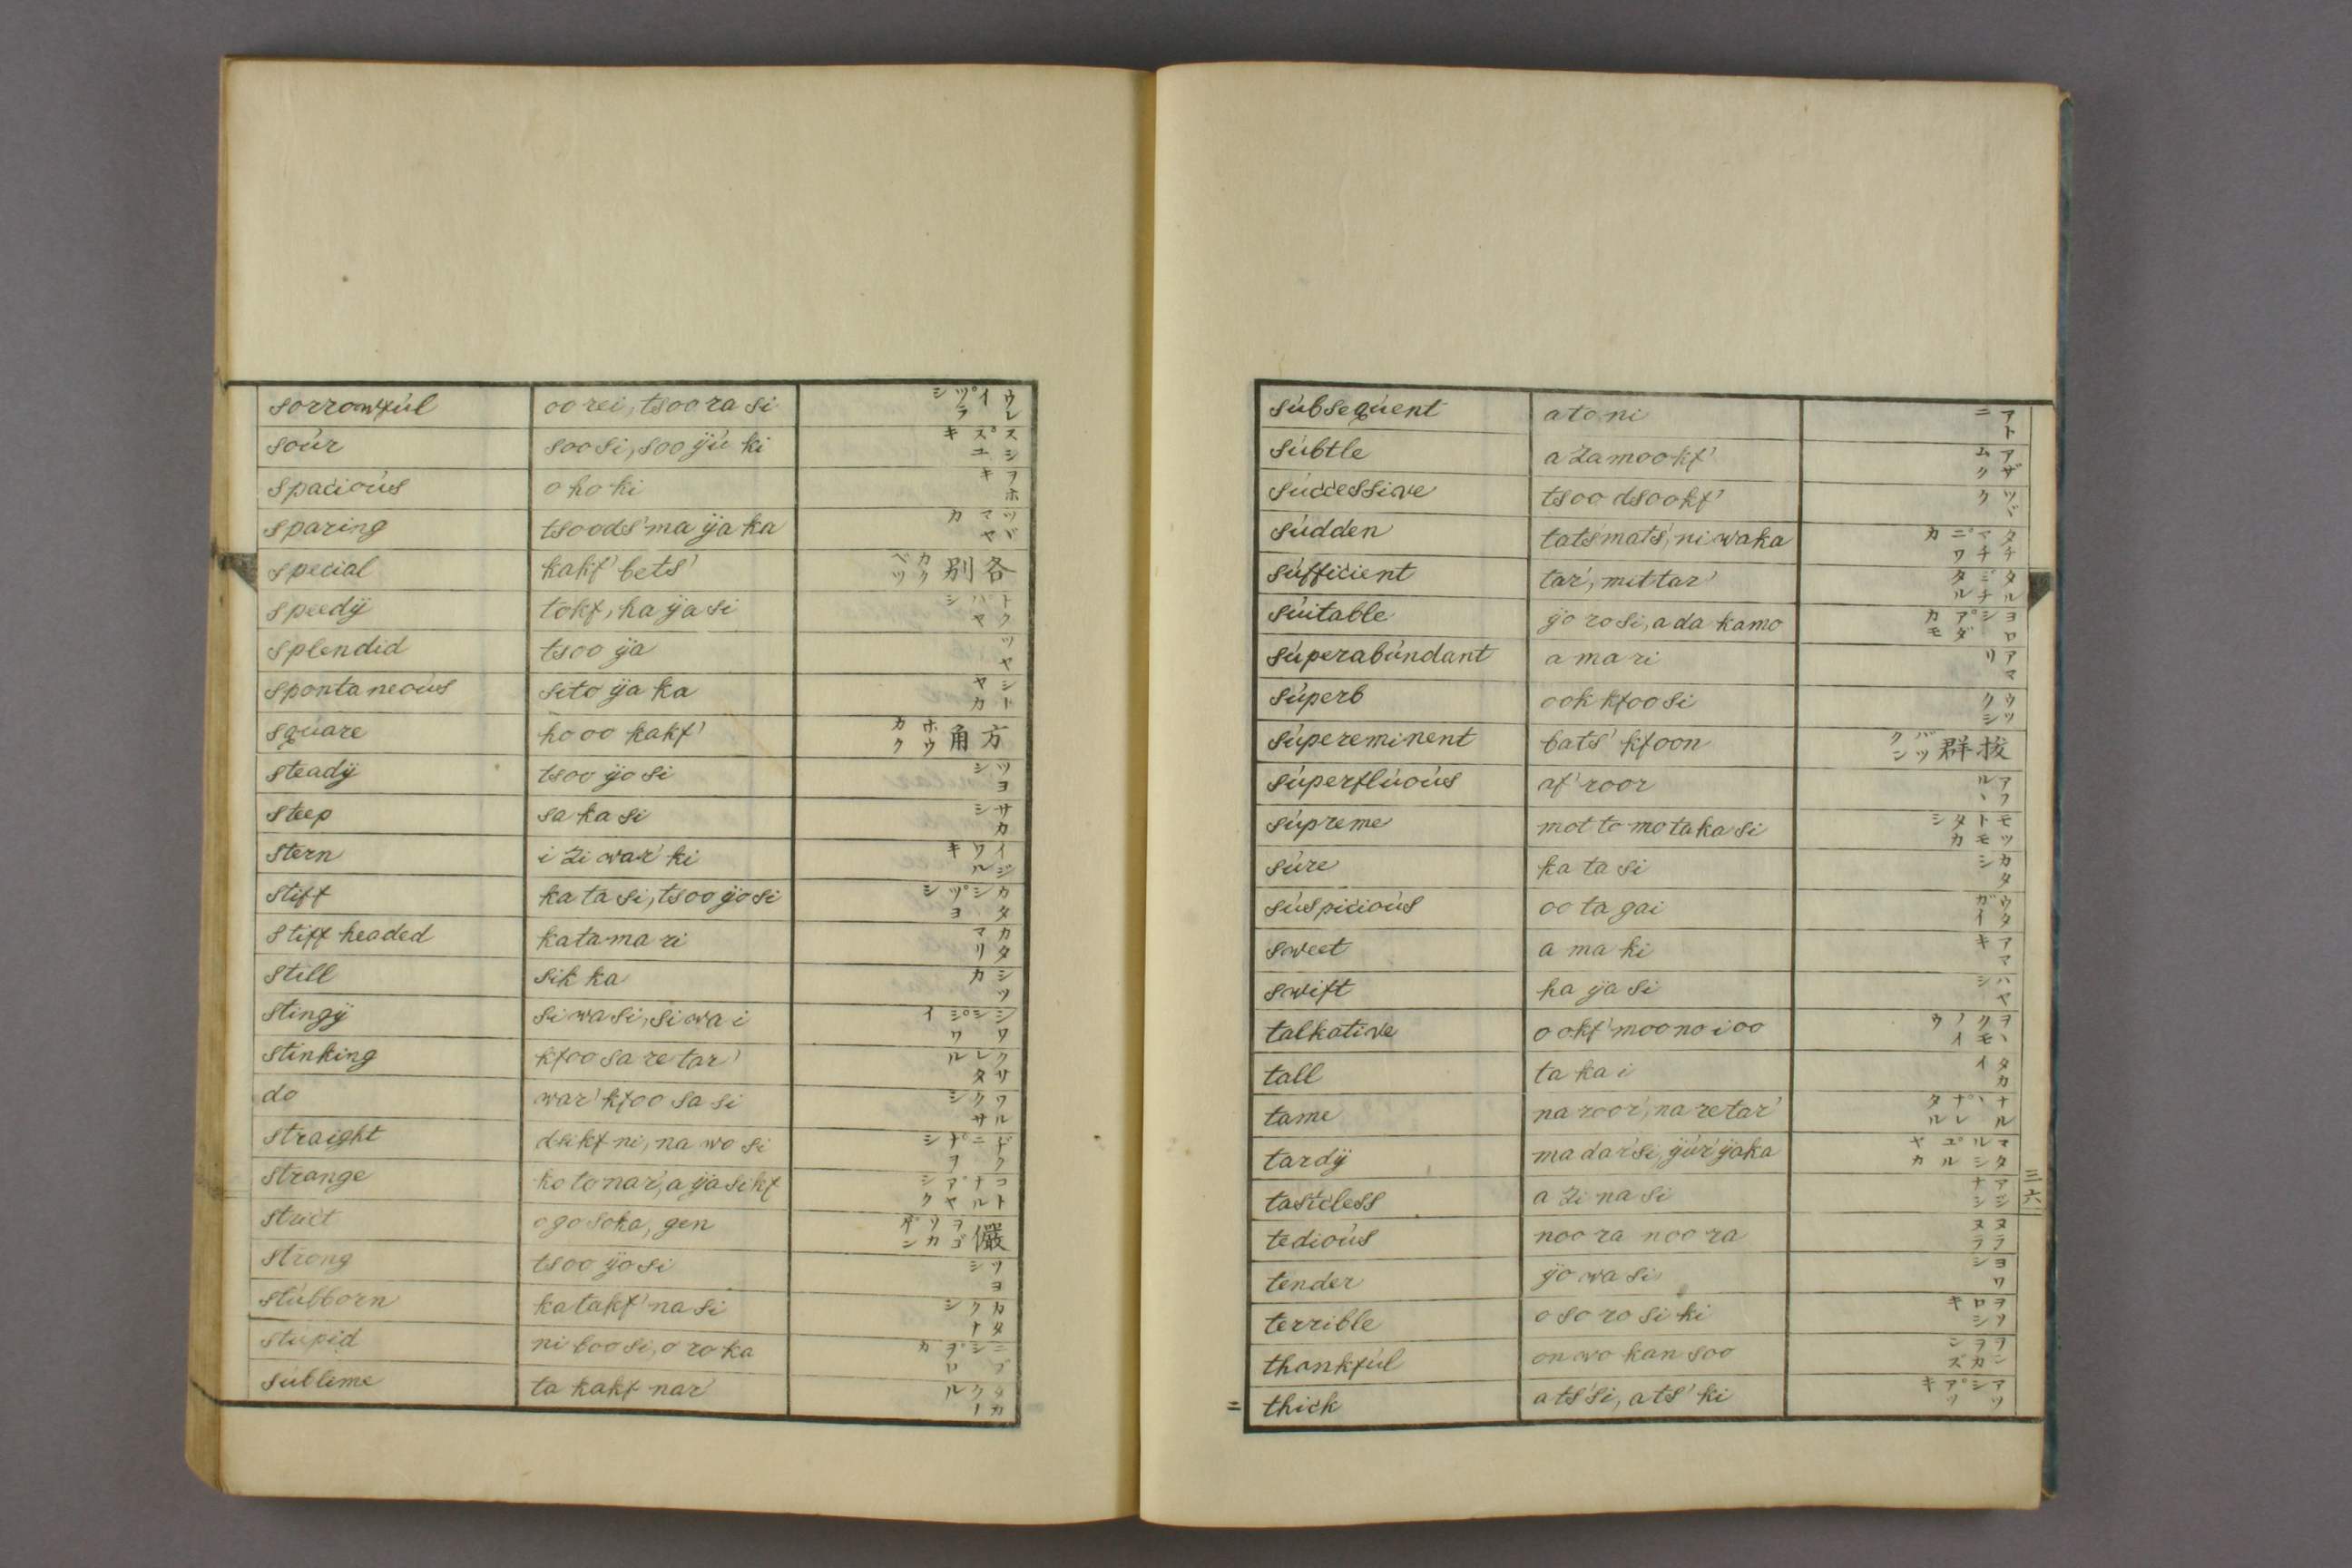 sorrowfúl oo rei, tsoo ra si ウレイ ツラシ
soúr soo si, soo ÿú ki スシ スユキ
spacioús o ho ki ヲホキ
sparing tsoods'ma ÿa ka ツヾマヤカ
special kakf' bets' 各別 カクベツ
speedÿ tokf, ha ÿa si トク ハヤシ
splendid tsoo ÿa ツヤ
spontaneoús sito ÿa ka シトヤカ
square ho oo kakf' 方角 ホウカク
steadÿ tsoo ÿo si ツヨシ
steep sa ka si サカシ
stern i zi war' ki イジワルキ
stiff ka ta si, tsoo ÿo si カタシ ツヨシ
stiff headed kata ma ri カタマリ
still sik ka シツカ
stingÿ si wa si, si wa i シワシ シワイ
stinking kfoo sa re tar' クサレタル
do war' kfoo sa si ワルクサシ
straight dsikf ni, na wo si ヂクニ ナヲシ
strange ko to nar', a ÿa sikf コトナル アヤシク
strict o go soka, gen 儼 ヲゴソカ ゲン
strong tsoo ÿo si ツヨシ
stúbborn katakf' na si カタクナシ
stupid ni boo si, o ro ka ニブシ ヲロカ
súblime ta kakf nar' タカクナル
súbsequent ato ni アトニ
súbtle a za mookf' アザムク
súccessive tsoo dsookf' ツヾク
súdden tats'mats', ni waka タチマチ ニワカ
súfficient tar', mittar' タル ミチタル
súitable ÿo ro si, a da kamo ヨロシ アダカモ
súperabúndant a ma ri アマリ
súperb ook kfoo si ウツクシ
súpereminent bats' kfoon 拔群 バツクン
súperflúoús af' roor アフヽル
súpreme mot to mo taka si モツトモタカシ
súre ka ta si カタシ
súspicioús oo ta gai ウタガイ
sweet a ma ki アマキ
swift ha ÿa si ハヤシ
talkative o okf' moo no i oo ヲヽクモノイウ
tall ta ka i タカイ
tame na roor', na re tar' ナルヽ ナレタル
tardÿ ma dar'si, ÿúr'ÿaka マタルシ ユルヤカ
tasteless a zi na si アジナシ
三六
tedioús noo ra noo ra ヌラヌラ
tender ÿo wa si ヨワシ
terrible o so ro si ki ヲソロシキ
thankfúl on wo kan soo ヲンヲカンズ
thick ats'si, ats' ki アツシ アツキ